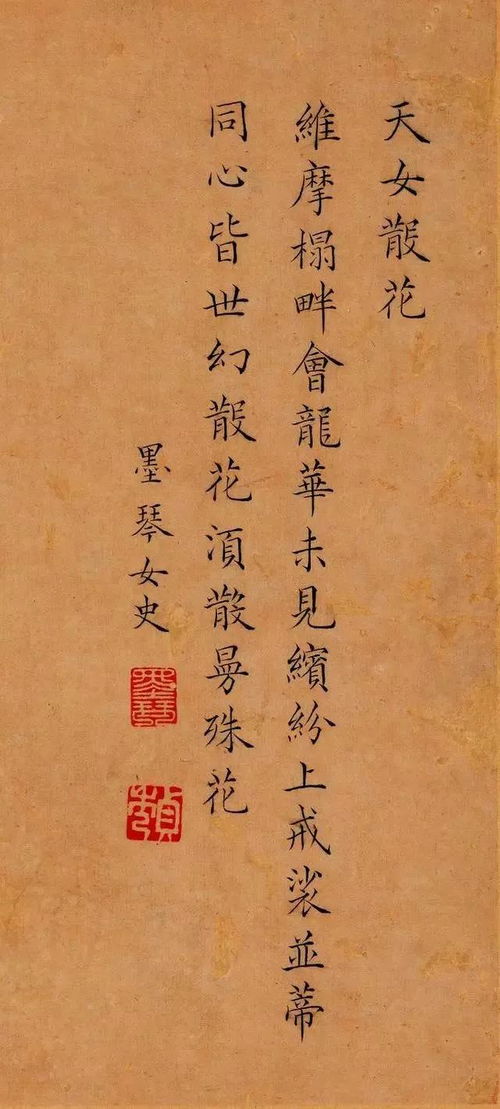 天女散花
維摩榻畔會龍華未見繽紛上戒裟並蒂
同心皆世幻散花湏散曼殊花
墨琴女史
墨琴
貞秀